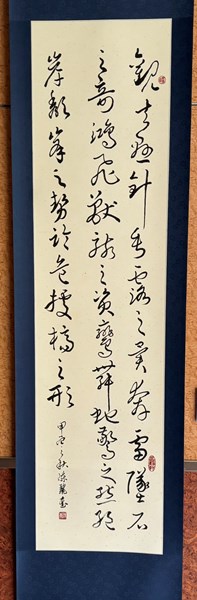 觀夫懸針垂露之異奔雷墜石
之奇鴻飛獸駭之資鸞舞蛇驚之態絕
岸頹峯之勢臨危據槁之形
甲辰之秋